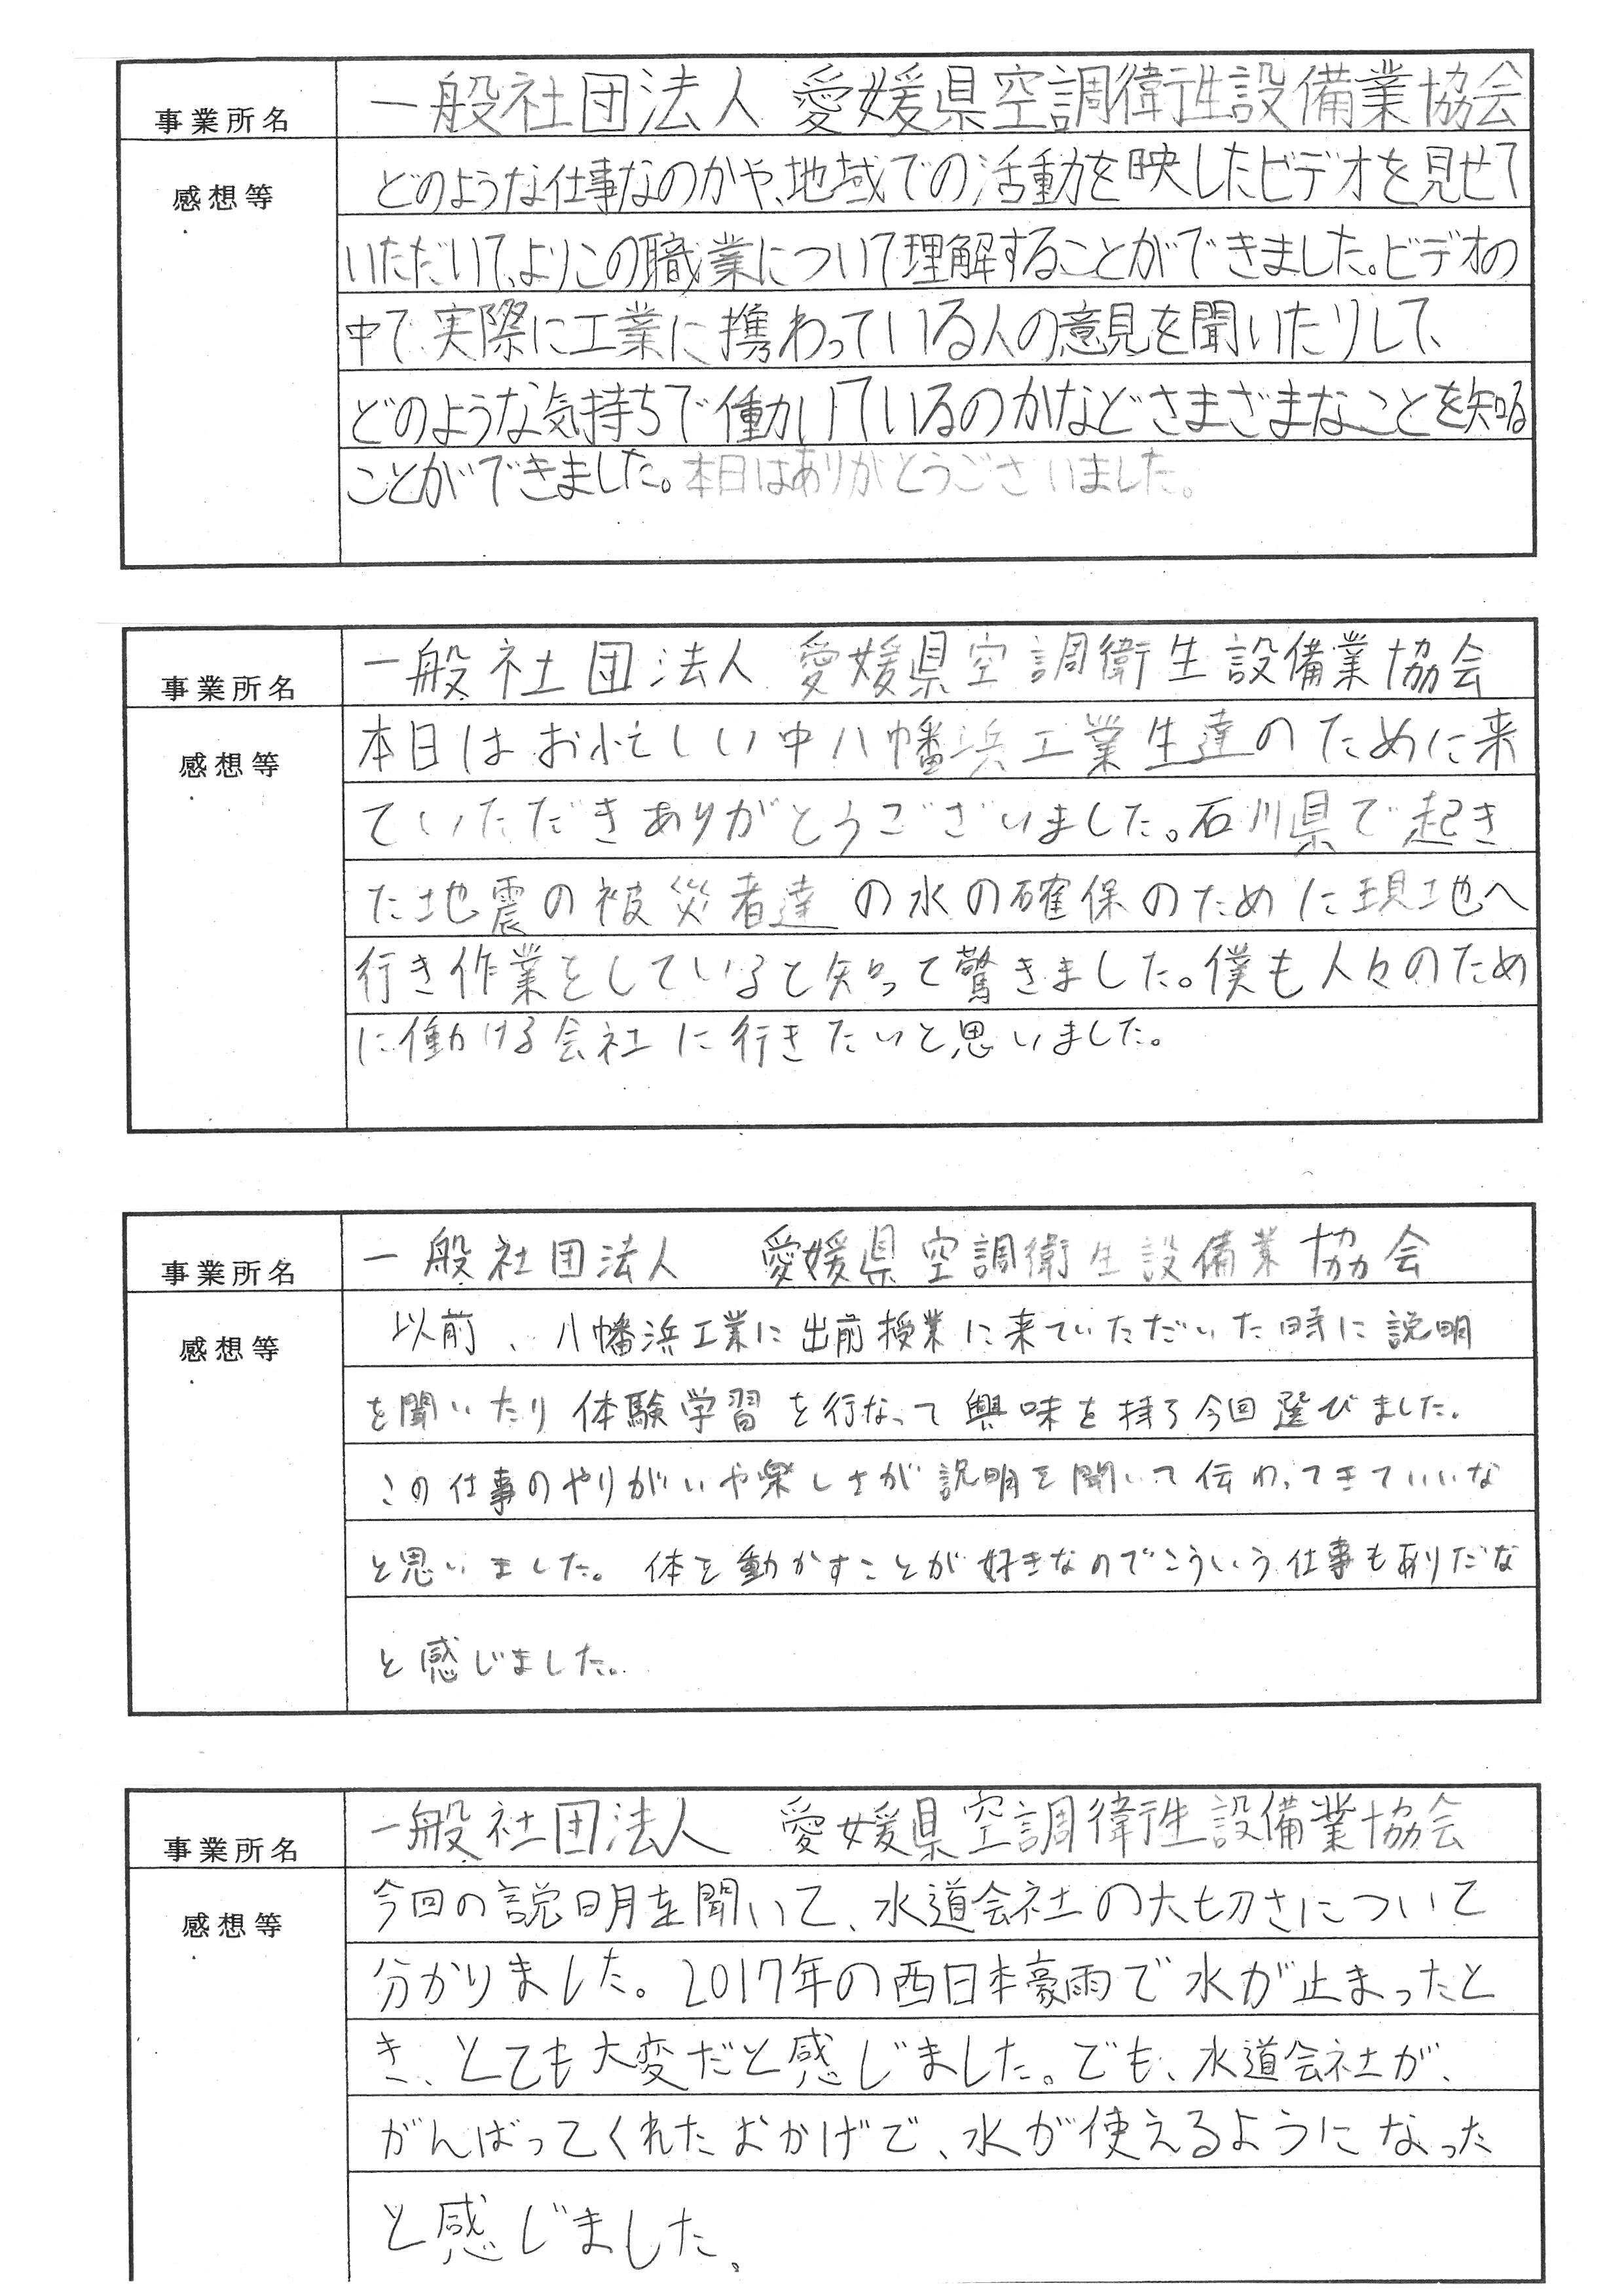 事業所名 一般社団法人 愛媛県空調衛生設備業協会
感想等 どのような仕事なのかや、地域での活動を映したビデオを見せて
いただいて、よりこの職業について理解することができました。ビデオの
中で、実際に工業に携わっている人の意見を聞いたりして、
どのような気持ちで働いているのかなどさまざまなことを知る
ことができました。本日はありがとうございました。
事業所名 一般社団法人 愛媛県空調衛生設備業協会
感想等 本日はお忙しい中八幡浜工業生達のために来
ていただきありがとうございました。石川県で起き
た地震の被災者達の水の確保のために現地へ
行き作業をしていると知って驚きました。僕も人々のため
に働ける会社に行きたいと思いました。
事業所名 一般社団法人 愛媛県空調衛生設備業協会
感想等 以前、八幡浜工業に出前授業に来ていただいた時に説明
を聞いたり体験学習を行なって興味を持ち今回選びました。
この仕事のやりがいや楽しさが説明を聞いて伝わってきていいな
と思いました。体を動かすことが好きなのでこういう仕事もありだな
と感じました。
事業所名 一般社団法人 愛媛県空調衛生設備業協会
感想等 今回の説明を聞いて、水道会社の大切さについて
分かりました。2017年の西日本豪雨で水が止まったと
き、とても大変だと感じました。でも、水道会社が、
がんばってくれたおかげで、水が使えるようになった
と感じました。